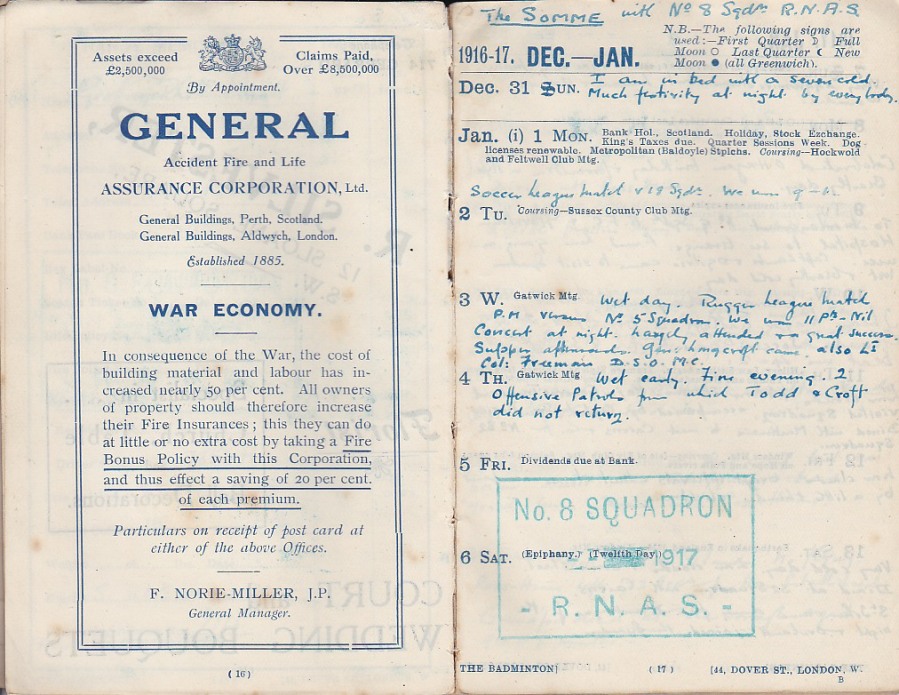 Assets exceed
£2,500,000
Claims Paid,
Over £8,500,000
By Appointment.
GENERAL
Accident Fire and Life
ASSURANCE CORPORATION, Ltd.
General Buildings, Perth, Scotland.
General Buildings, Aldwych, London.
Established 1885.
WAR ECONOMY.
In consequence of the War, the cost of
building material and labour has in-
creased nearly 50 per cent. All owners
of property should therefore increase
their Fire Insurances; this they can do
at little or no extra cost by taking a Fire
Bonus Policy with this Corporation,
and thus effect a saving of 20 per cent.
of each premium.
Particulars on receipt of post card at
either of the above Offices.
F. NORIE-MILLER, J.P.
General Manager.
(16)
The SOMME with No 8 Sqdn R.N.A.S.
N.B.—The following signs are
used:—First Quarter ☽ Full
Moon ○ Last Quarter ☾ New
Moon ● (all Greenwich).
1916-17. DEC.—JAN.
Dec. 31 SUN. I am in bed with a severe cold.
Much festivity at night by everybody.
Jan. (i) 1 MON. Bank Hol., Scotland. Holiday, Stock Exchange.
King's Taxes due. Quarter Sessions Week. Dog
licenses renewable. Metropolitan (Baldoyle) Stplchs. Coursing—Hockwold
and Feltwell Club Mtg.
Soccer League match v 18 Sqdn. We won
2 TU. Coursing—Sussex County Club Mtg.
3 W. Gatwick Mtg. Wet day. Rugger League match
P.M versus No 5 Squadron. We won 11 Pts - Nil
Concert at night. Largely attended & great success
Supper afterwards. Genl Longcroft came, also Lt
Col: Freeman D.S.O. M.C.
4 TH. Gatwick Mtg. Wet early. Fine evening. 2
Offensive Patrols from which Todd & Croft
did not return.
5 FRI. Dividends due at Bank.
No. 8 SQUADRON
6 SAT. (Epiphany.) (Twelfth Day) 1917
- R. N. A. S. -
THE BADMINTON]
(17)
[44, DOVER ST., LONDON, W.
B